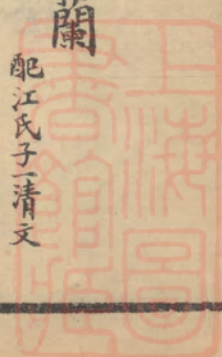 蘭
配江氏子一清文
上海圖
書館藏